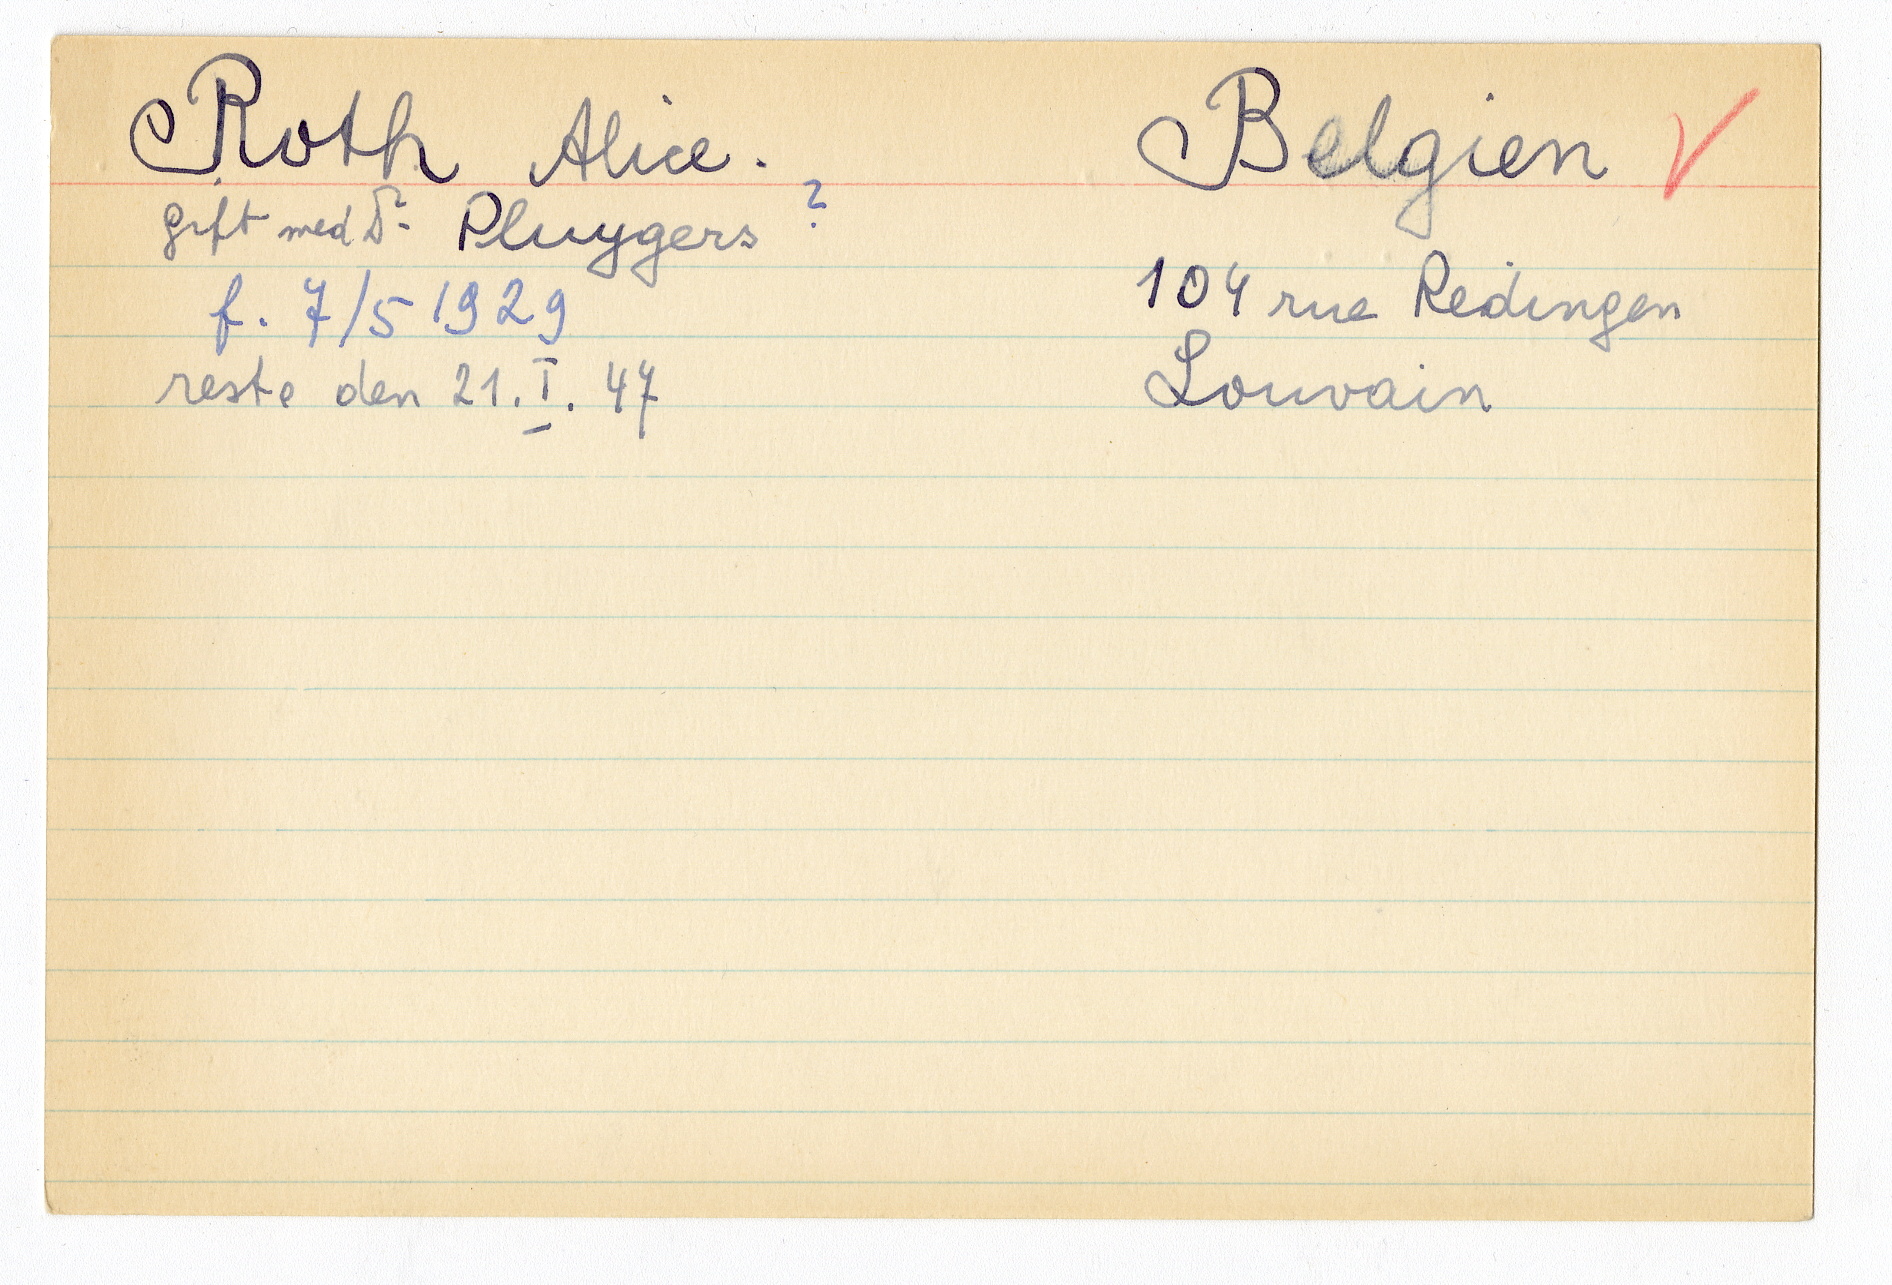 Roth Alice.
gift med Dr Pluygers ?
f. 7/5 1929
reste den 21. I. 47
Belgien
104 rue Redingen
Louvain